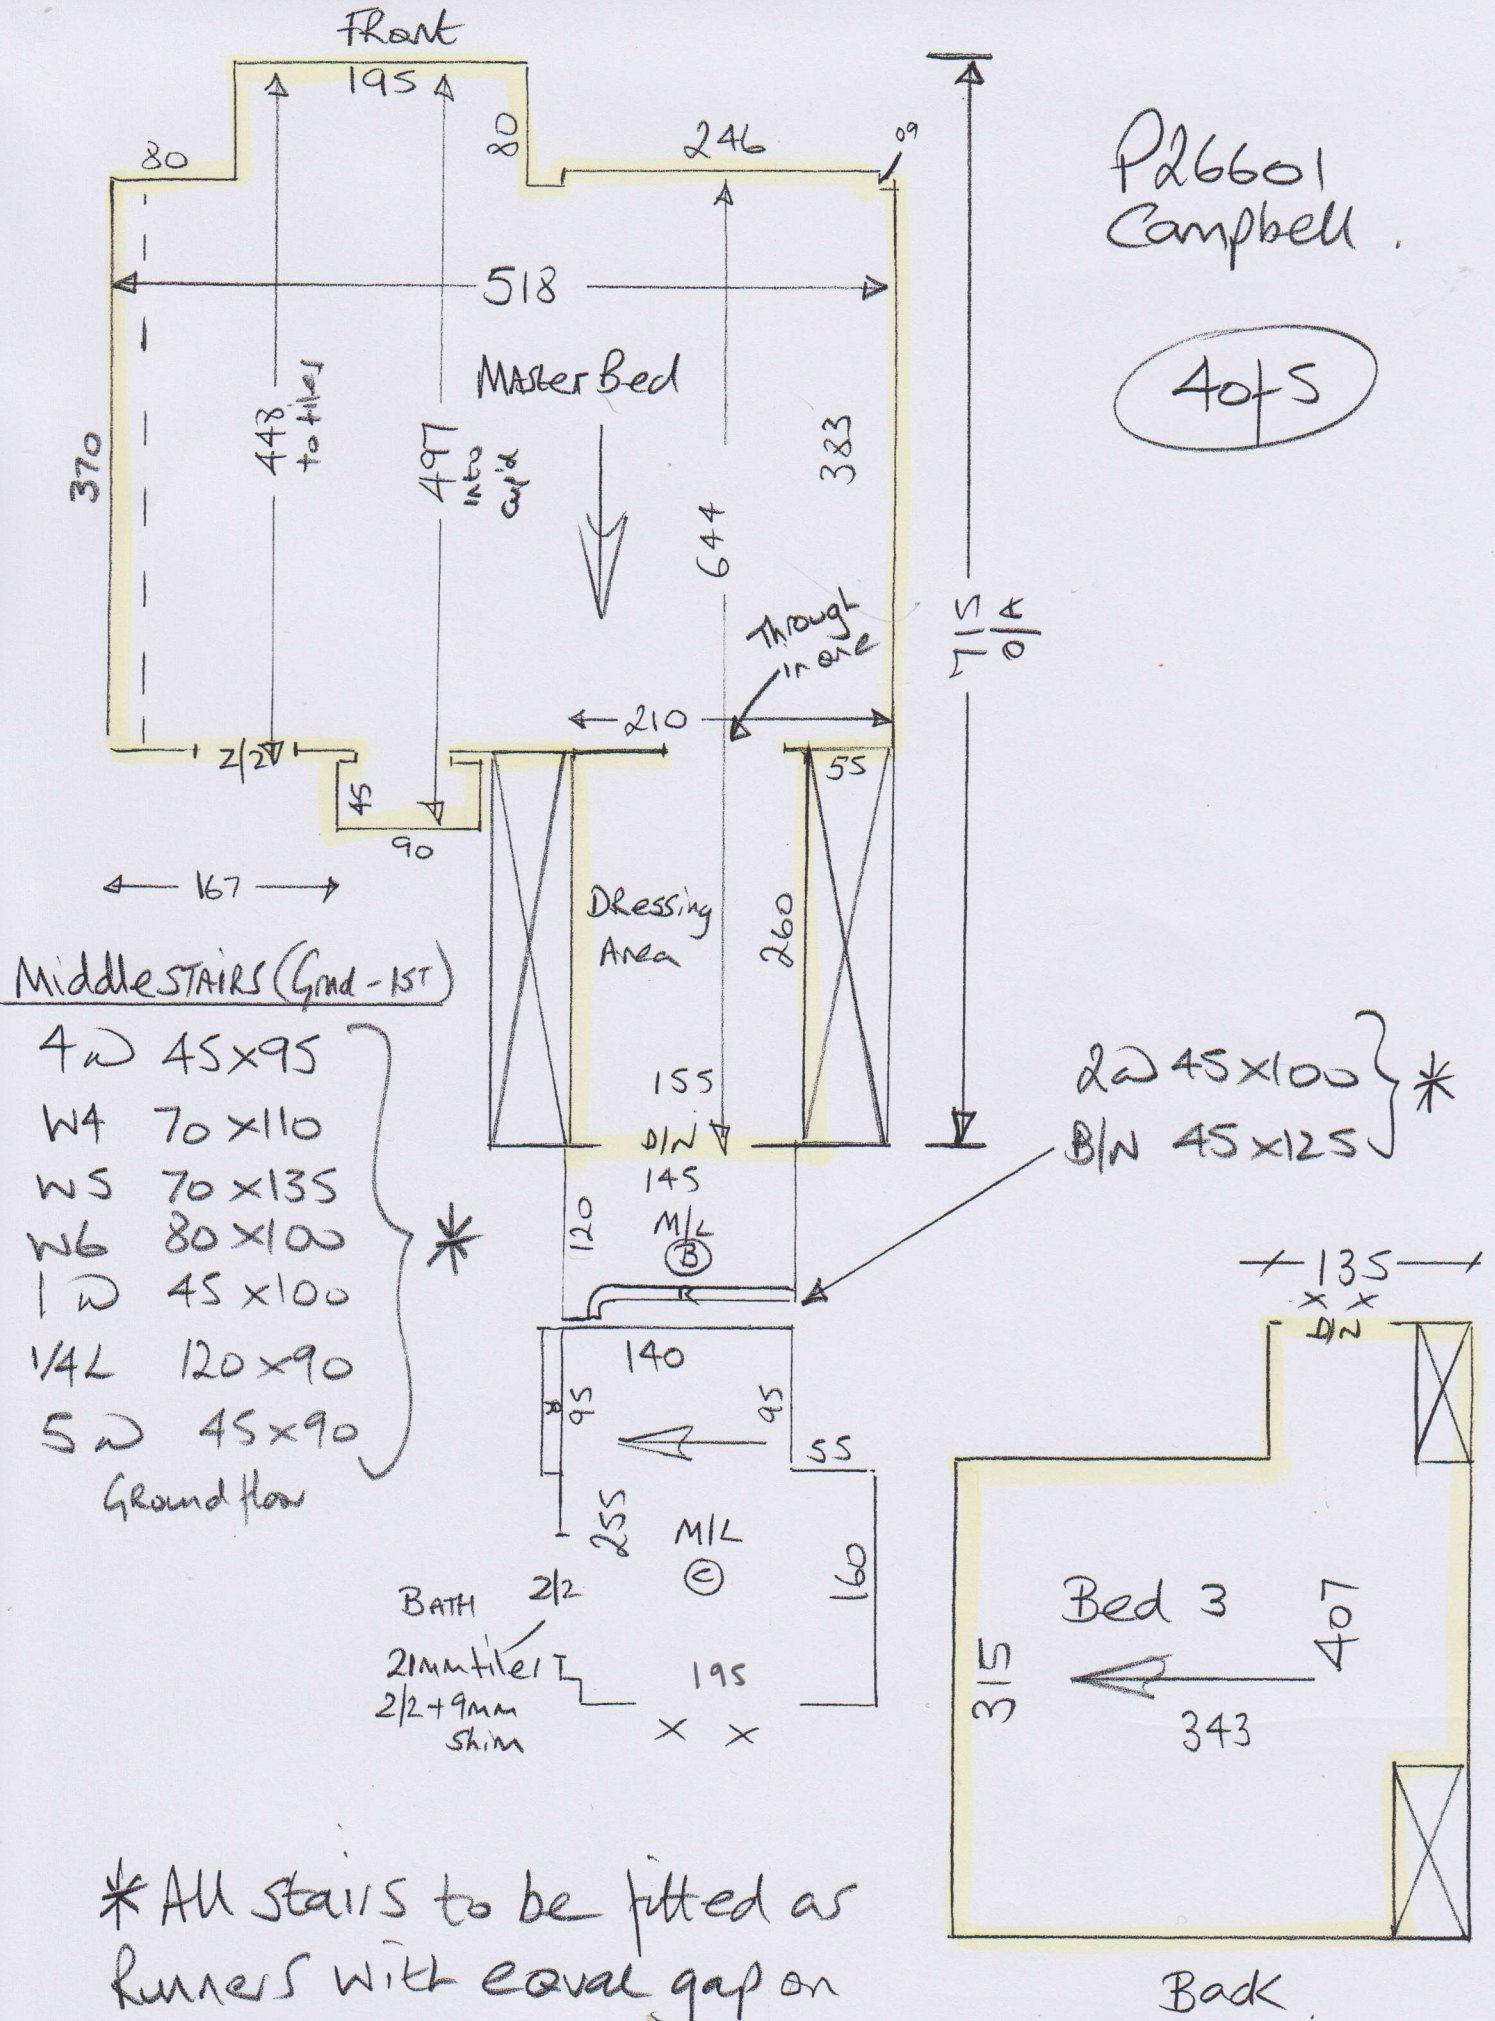 Front
195
80
80
246
09
P26601
Campbell.
4 of 5
518
Master Bed
448
to tiles
497
into
cup'd
370
383
644
715
O/A
Through
in one
210
2/2
45
90
55
167
Dressing
Area
260
155
D/N
145
M/L
B
120
R
Middle STAIRS (Grnd - 1ST)
4 N 45x95
W4 70x110
W5 70x135
W6 80x100
1 N 45x100
1/4L 120x90
5 N 45x90
Ground floor
*
2 N 45x100
B/N 45x125
*
140
95
95
55
255
M/L
C
160
BATH 2/2
21mm tiles
2/2+9mm
Shim
195
x x
135
x x
D/N
Bed 3
315
407
343
Back
* All stairs to be fitted as
Runners with equal gap on